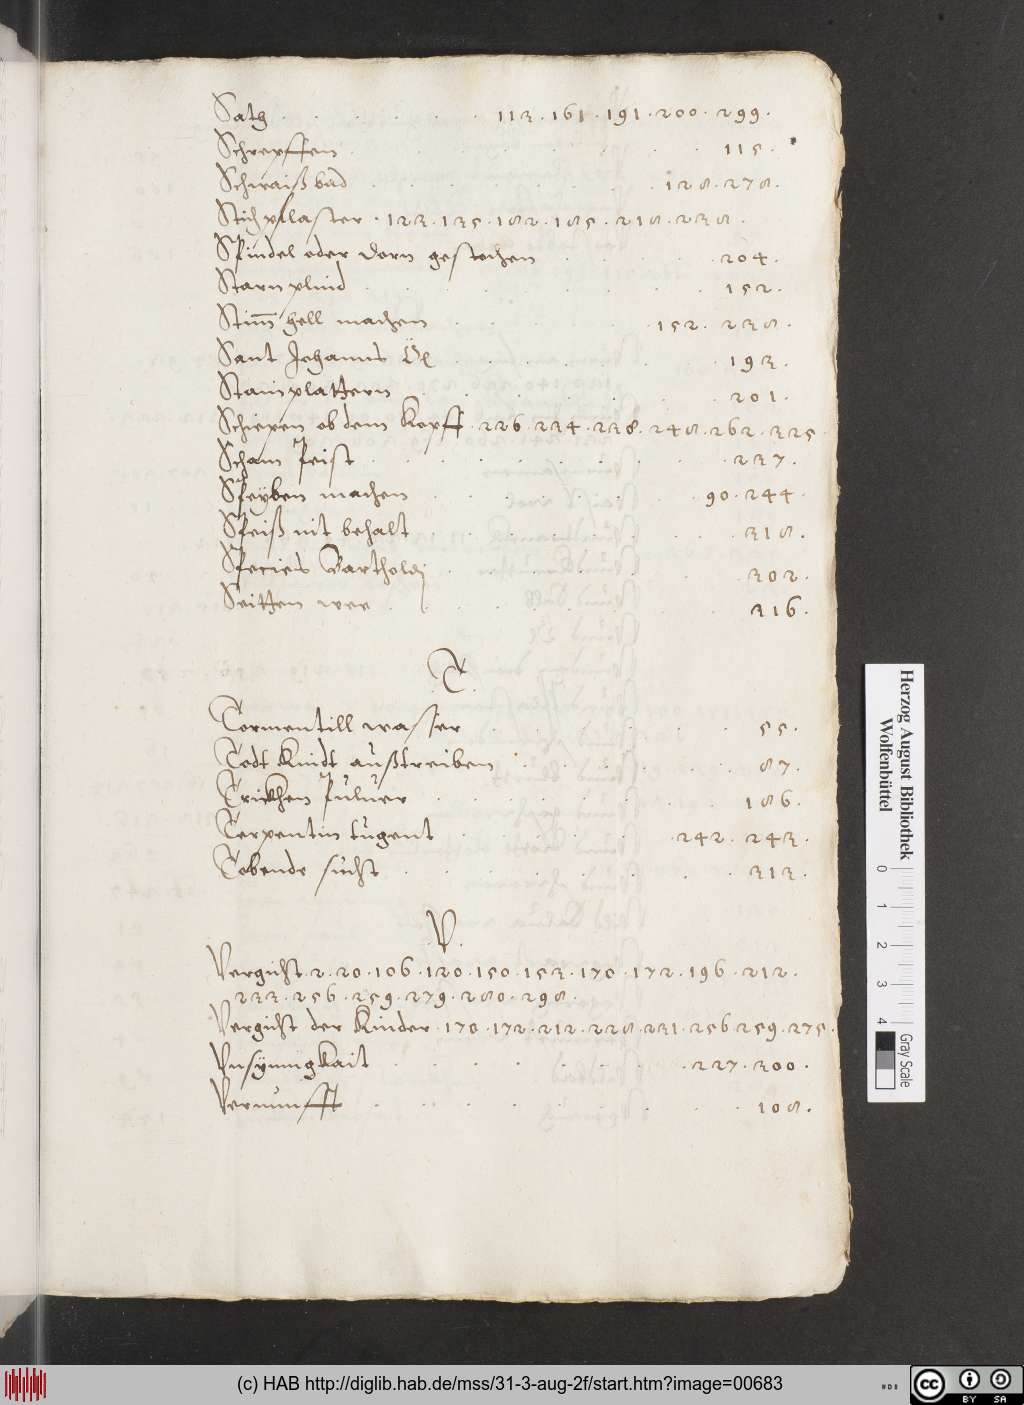 Sath . . . . . . 113 . 161 . 191 . 200 . 299 .
Schrepffen . . . . . . 115 .
Schwaiß bad . . . . . . 128 . 278 .
Stichpflaster . 123 . 135 . 182 . 185 . 218 . 238 .
Spindel oder dorn gestochen . . . . 204 .
Starn plind . . . . . . 152 .
Stim̄ hell machen . . . . 152 . 238 .
Sant Johanns Öl . . . . . 193 .
Stainplattern . . . . . . 201 .
Schiepen ob dem Kopff . 226 . 234 . 238 . 248 . 262 . 325
Scham Feist . . . . . . 237 .
Speyben machen . . . . . 90 . 244 .
Speiß nit behalt . . . . . 318 .
Species Bartholdj . . . . . 302 .
Seitten wee . . . . . . 316 .
T.
Tormentill wasser . . . . . 55 .
Todt Kindt außtreiben . . . . 87 .
Trickhen Puluer . . . . . 186 .
Terpentin tugent . . . . 242 . 243 .
Tobende sucht . . . . . 313 .
V.
Vergicht . 2 . 20 . 106 . 120 . 150 . 153 . 170 . 172 . 196 . 212 .
233 . 256 . 259 . 279 . 280 . 298 .
Vergicht der Kinder . 170 . 172 . 212 . 228 . 231 . 256 . 259 . 275 .
Vnsynnigkait . . . . . 227 . 300 .
Vernunfft . . . . . . 108 .
Herzog August Bibliothek
Wolfenbüttel
0 1 2 3 4 Gray Scale
(c) HAB http://diglib.hab.de/mss/31-3-aug-2f/start.htm?image=00683
HAB
cc BY SA